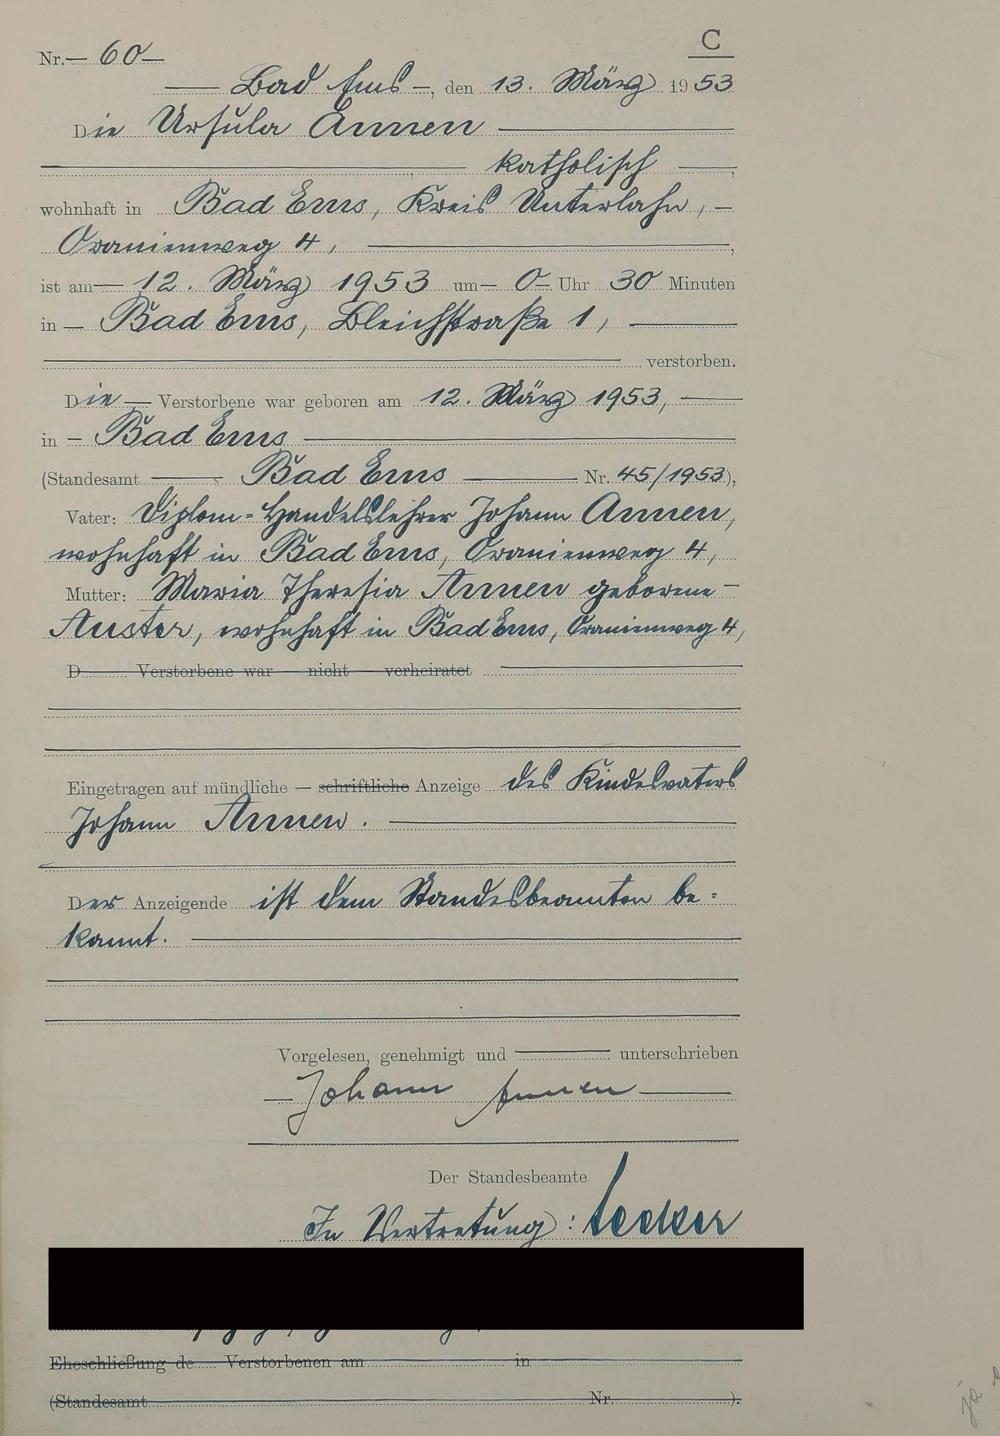 C
Nr. — 60 —
— Bad Ems —, den 13. März 1953
Die Ursula Annen —
— katholisch —,
wohnhaft in Bad Ems, Kreis Unterlahn, —
Oranienweg 4, —,
ist am — 12. März 1953 um — 0 — Uhr 30 Minuten
in — Bad Ems, Bleichstraße 1, —
— verstorben.
Die — Verstorbene war geboren am 12. März 1953, —
in — Bad Ems —
(Standesamt — Bad Ems — Nr. 45/1953),
Vater: Diplom-Handelslehrer Johann Annen,
wohnhaft in Bad Ems, Oranienweg 4,
Mutter: Maria Theresia Annen geborene —
Auster, wohnhaft in Bad Ems, Oranienweg 4,
D Verstorbene war — nicht — verheiratet —
Eingetragen auf mündliche — schriftliche Anzeige des Kindesvaters
Johann Annen. —
Der Anzeigende ist dem Standesbeamten be=
kannt. —
Vorgelesen, genehmigt und — unterschrieben
— Johann Annen —
Der Standesbeamte
In Vertretung:
Eheschließung de Verstorbenen am in
(Standesamt Nr. ).
ja